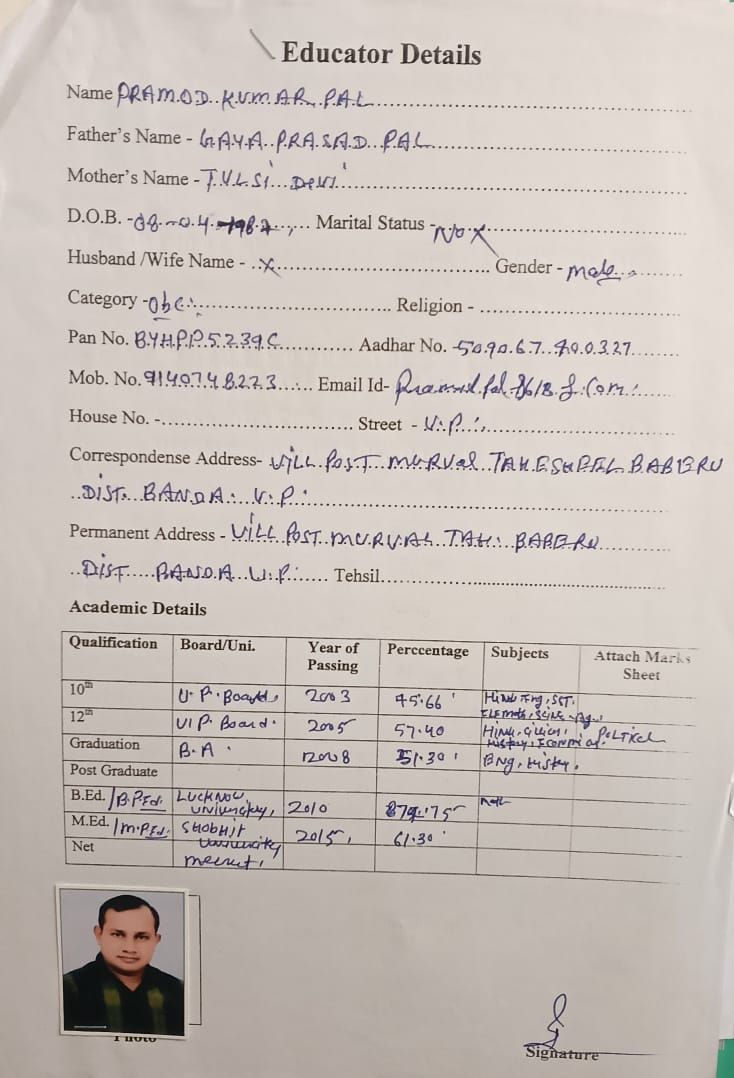 Educator Details
Name PRAMOD KUMAR PAL
Father's Name - GAYA PRASAD PAL
Mother's Name - TULSI DEVI
D.O.B. - 08-04-1982 Marital Status - NO X
Husband /Wife Name - X Gender - male
Category - obc Religion -
Pan No. BYHPP5239C Aadhar No.
Mob. No. 9140748223 Email Id-
House No. - Street - U.P.
Correspondense Address- VILL POST MURVAL TAHESHEEL BABERU
DIST. BANDA U.P.
Permanent Address - VILL POST MURVAL TAH. BABERU
DIST BANDA U.P. Tehsil
Academic Details
Qualification Board/Uni. Year of Passing Perccentage Subjects Attach Marks Sheet
10th U.P. Board 2003 45.66 SST.
12th U.P. Board. 2005 57.40
Graduation B.A. 2008 51.30 Eng,
Post Graduate
B.Ed. /B.P.Ed. LUCKNOW University, 2010
M.Ed. /M.P.Ed. SHOBHIT University 2015, 61.30
Net meerut,
Photo
Signature